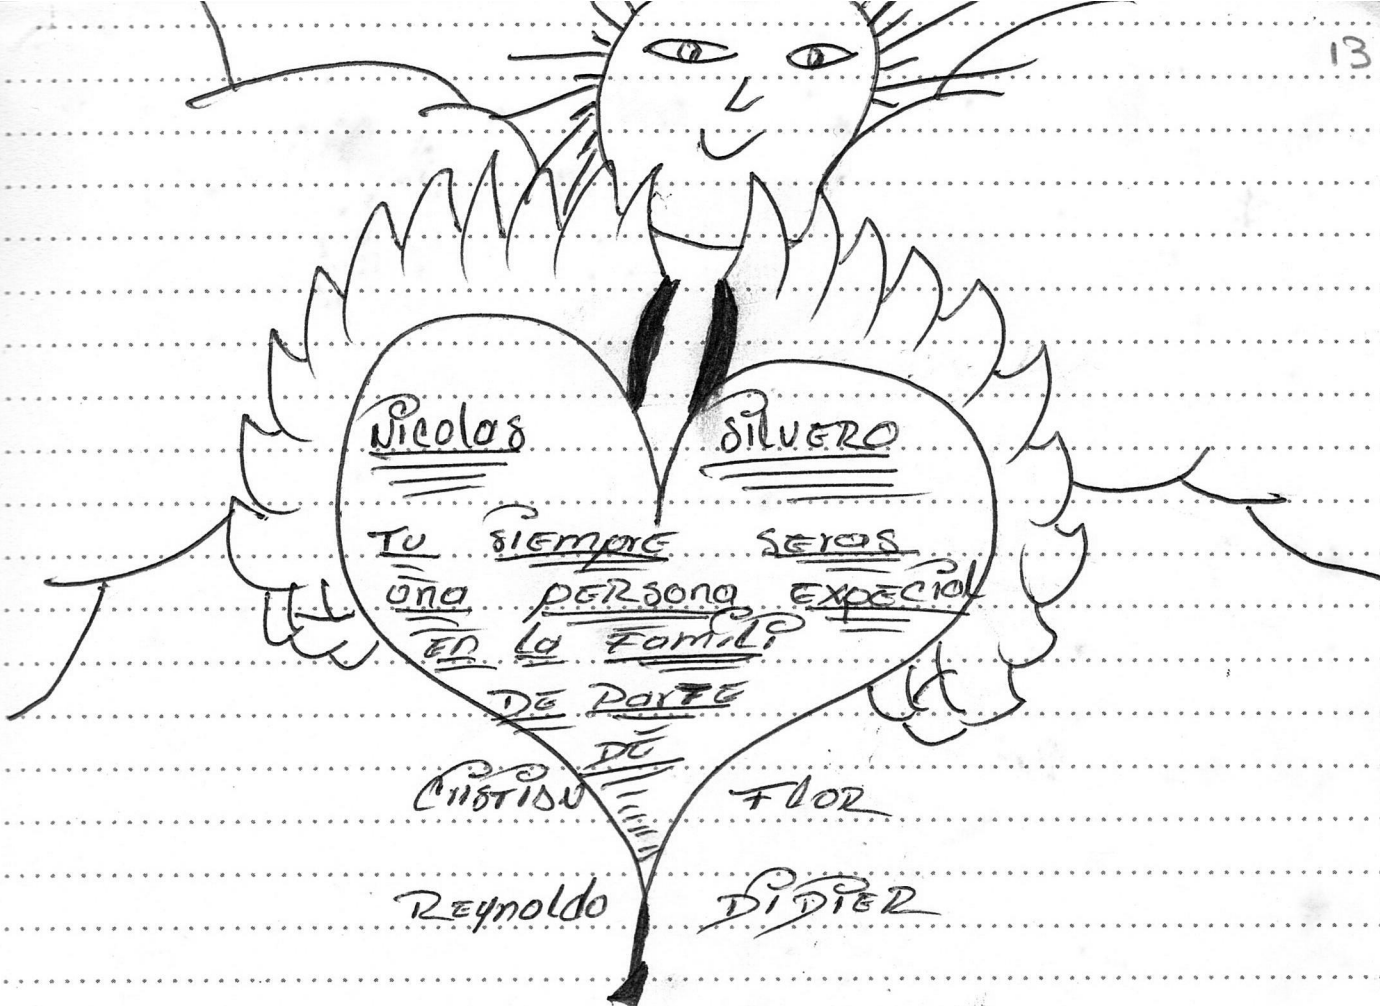 13
Nicolas SilVERO
Tu SiEmprE seras
una pERsona ExpECial
En la Famili
DE ParTE
DE
CristiaN FloR
REynoldo DiDiER